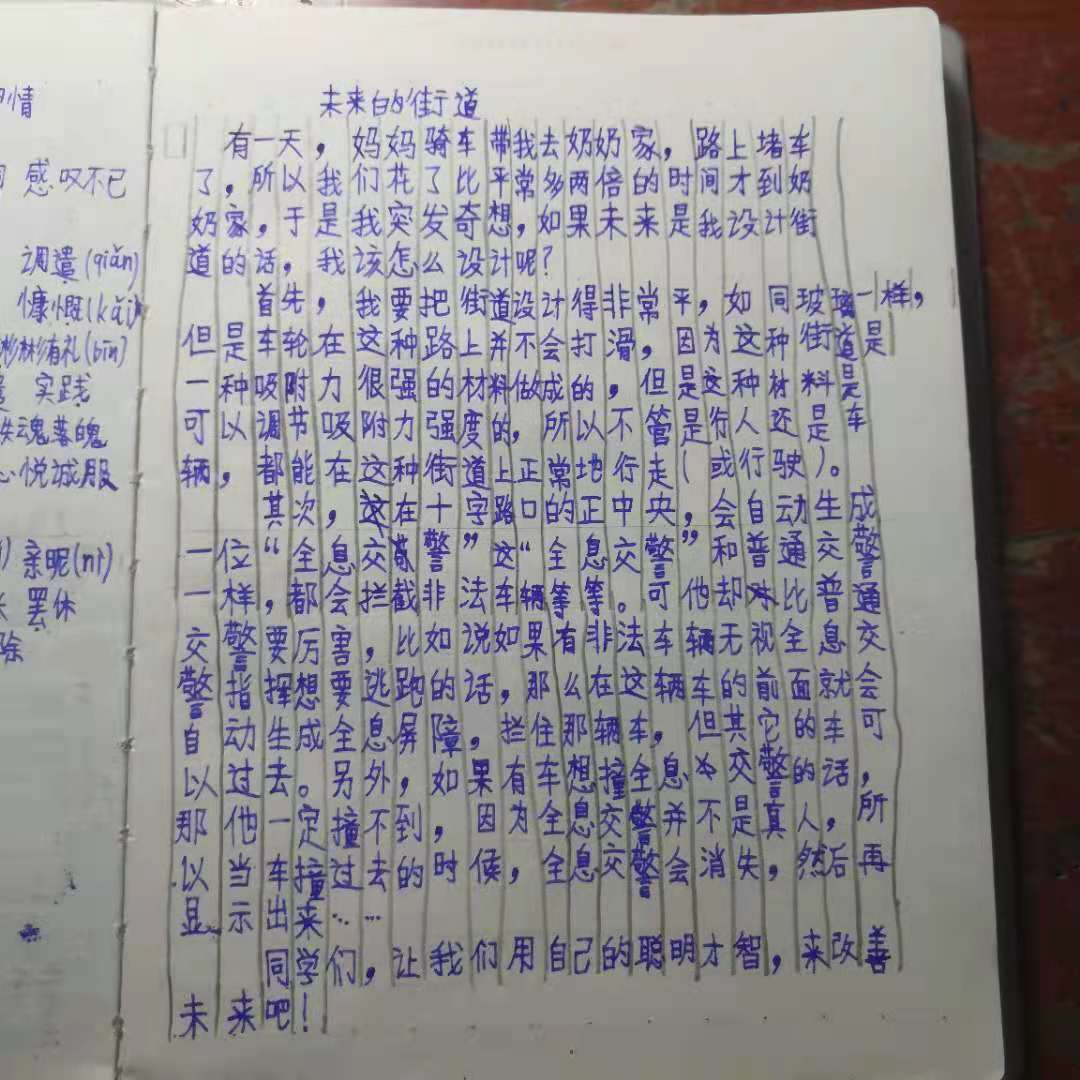 情
感叹不已
调遣(qiǎn)
慷慨(kǎi)
彬彬有礼(bīn)
实践
失魂落魄
心悦诚服
亲昵(nì)
罢休
除
未来的街道
有一天，妈妈骑车带我去奶奶家，路上堵车
了，所以我们花了比平常多两倍的时间才到奶
奶家，于是我突发奇想，如果未来是我设计街
道的话，我该怎么设计呢？
首先，我要把街道设计得非常平，如同玻璃一样，
但是车轮在这种路上并不会打滑，因为这种街道是
一种吸附力很强的材料做成的，但是这种材料是
可以调节吸附力强度的，所以不管是行人还是车
辆，都能在这种街道上正常地行走(或行驶)。
其次，这在十字路口的正中央，会自动生成
一位“全息交警”这“全息交警”和普通交警
一样，都会拦截非法车辆等等。可他却比普通
交警要厉害，比如说如果有非法车辆无视全息交
警指挥想要逃跑的话，那么在这辆车的前面就会
自动生成全息屏障，拦住那辆车，但其它的车可
以过去。另外，如果有车想撞全息交警的话，
那他一定撞不到，因为全息交警并不是真人，所
以当车撞过去的时候，全息交警会消失，然后再
显示出来……
同学们，让我们用自己的聪明才智，来改善
未来吧！